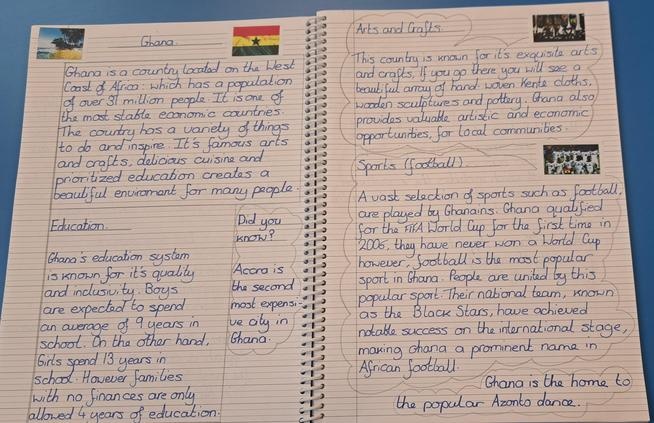 Ghana.
Ghana is a country located on the West
Coast of Africa: which has a population
of over 31 million people. It is one of
the most stable economic countries.
The country has a variety of things
to do and inspire. It's famous arts
and crafts, delicious cuisine and
prioritized education creates a
beautiful enviroment for many people.
Education.
Ghana's education system
is known for it's quality
and inclusivity. Boys
are expected to spend
an average of 9 years in
school. On the other hand,
Girls spend 13 years in
school. However families
with no finances are only
allowed 4 years of education.
Did you
know?
Accra is
the second
most expensi-
ve city in
Ghana.
Arts and Crafts.
This country is known for it's exquisite arts
and crafts. If you go there you will see a
beautiful array of hand-woven Kente cloths,
wooden sculptures and pottery. Ghana also
provides valuable artistic and economic
opportunities, for local communities.
Sports (football).
A vast selection of sports such as football,
are played by Ghanains. Ghana qualified
for the FIFA World Cup for the first time in
2006, they have never won a World Cup
however, football is the most popular
sport in Ghana. People are united by this
popular sport. Their national team, known
as the Black Stars, have achieved
notable success on the international stage,
making Ghana a prominent name in
African football.
Ghana is the home to
the popular Azonto dance.